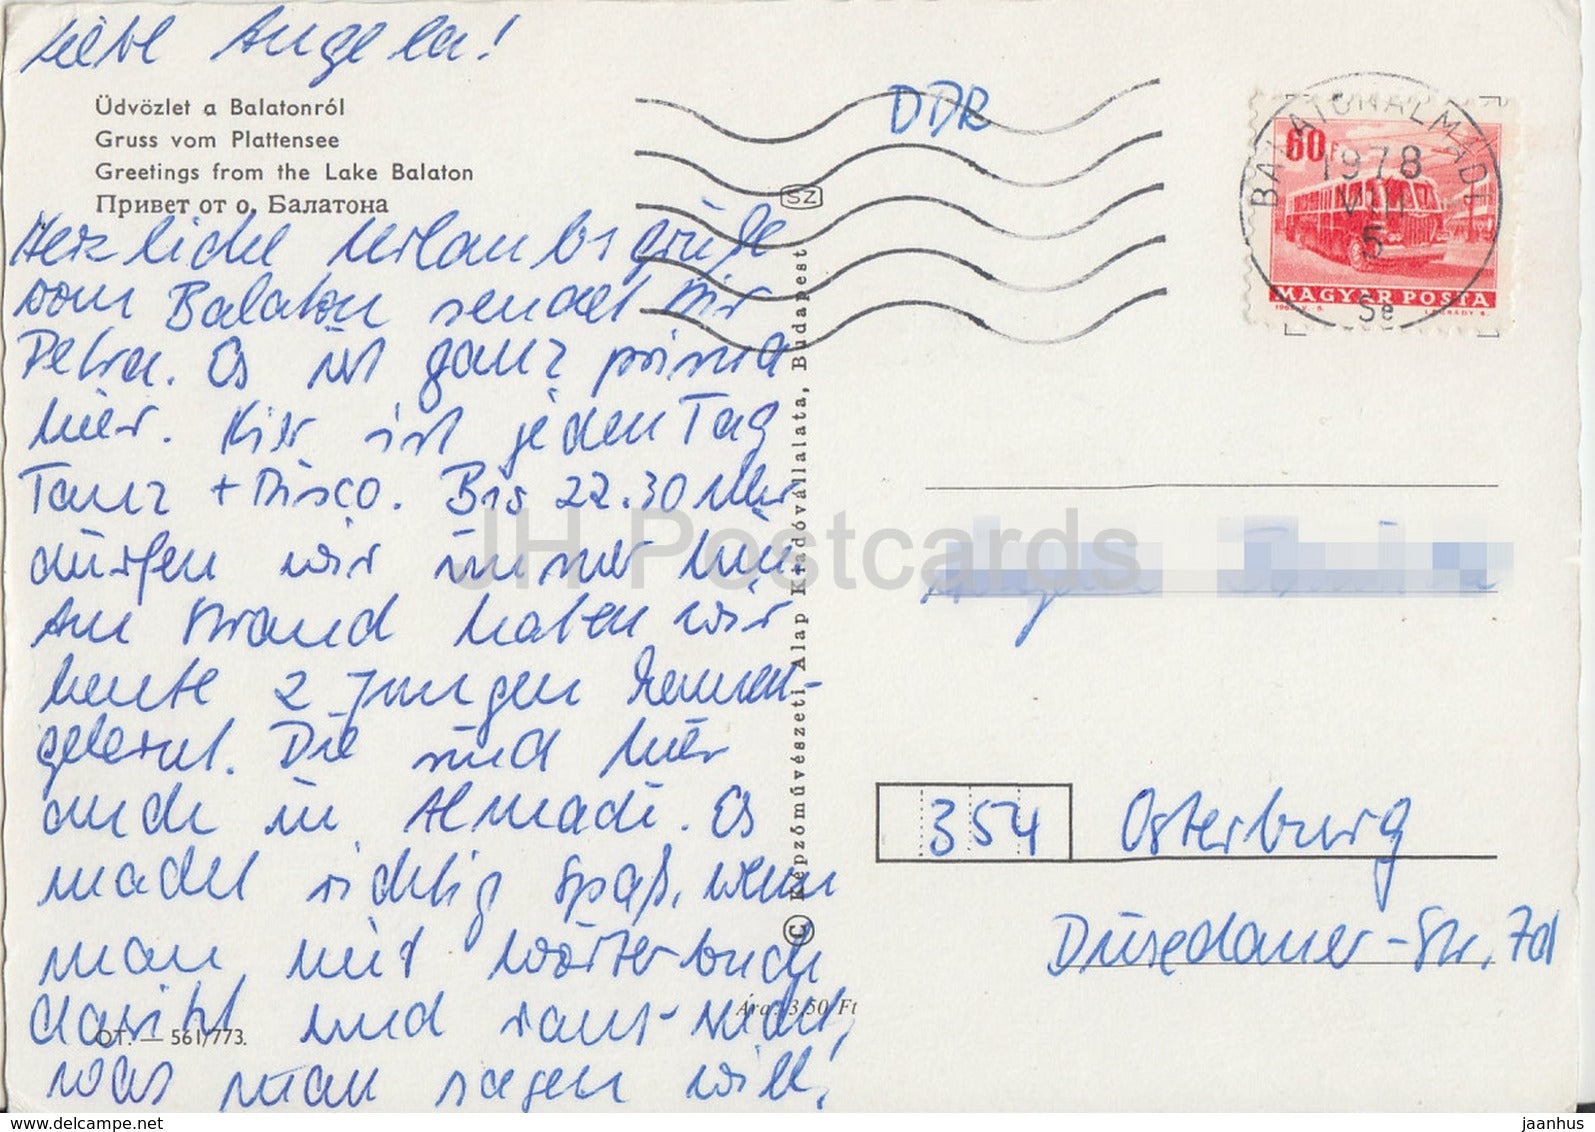 Liebe Angela!
Üdvözlet a Balatonról
Gruss vom Plattensee
Greetings from the Lake Balaton
Привет от о. Балатона
Herzliche Urlaubsgrüße
vom Balaton sendet Dir
Petra. Es ist ganz prima
hier. Hier ist jeden Tag
Tanz + Disco. Bis 22.30 Uhr
dürfen wir immer hin.
Am Strand haben wir
heute 2 Jungen kennen-
gelernt. Die sind hier
auch in Almadi. Es
macht richtig Spaß, wenn
man mit Wörterbuch
dasitzt und raus-sucht,
was man sagen will!
OT. — 561/773.
Ára: 3,50 Ft
© Képzőművészeti Alap Kiadóvállalata, Budapest
SZ
DDR
BALATONALMÁDI
1978
VIII
5
Se
60 f
MAGYAR POSTA
JH Postcards
354 Osterburg
Düsedauer-Str. 7d
www.delcampe.net
jaanhus